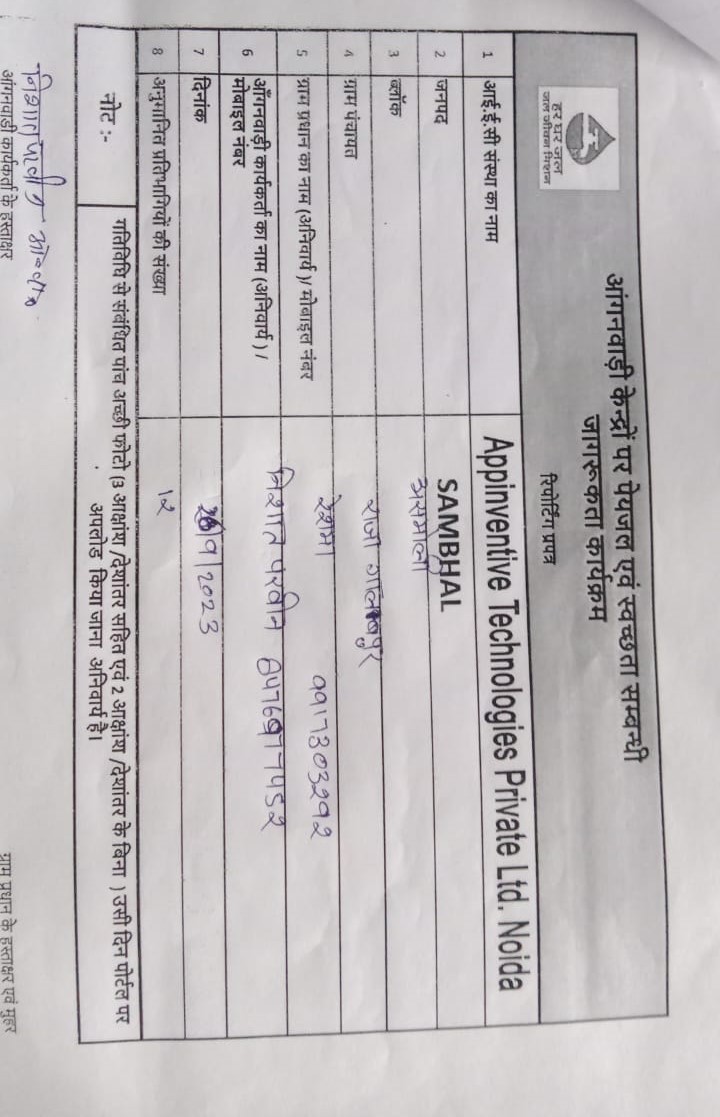 हर घर जल
जल जीवन मिशन
आंगनवाड़ी केन्द्रों पर पेयजल एवं स्वच्छता सम्बन्धी
जागरूकता कार्यक्रम
रिपोर्टिंग प्रपत्र
1 आई.ई.सी संस्था का नाम Appinventive Technologies Private Ltd. Noida
2 जनपद SAMBHAL
3 ब्लॉक असमोली
4 ग्राम पंचायत
5 ग्राम प्रधान का नाम (अनिवार्य )/ मोबाइल नंबर रेशमा 9917303292
6 आँगनवाड़ी कार्यकर्ता का नाम (अनिवार्य ) / निशात परवीन
मोबाइल नंबर
7 दिनांक /9/2023
8 अनुमानित प्रतिभागियों की संख्या 12
नोट :- गतिविधि से संबंधित पांच अच्छी फोटो (3 आक्षांण /देशांतर सहित एवं 2 आक्षांण /देशांतर के बिना ) उसी दिन पोर्टल पर
अपलोड किया जाना अनिवार्य है।
निशात परवीन
आंगनवाड़ी कार्यकर्ता के हस्ताक्षर ग्राम प्रधान के हस्ताक्षर एवं मुहर